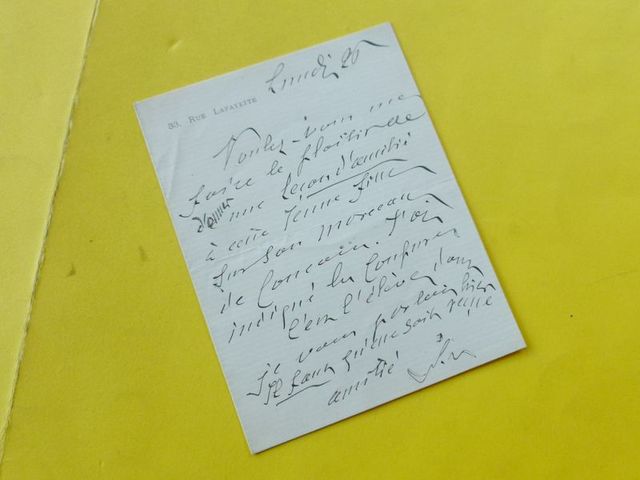 Lundi 26
83, RUE LAFAYETTE
Voulez-vous me
faire le plaisir de
donner une leçon d'amitié
à cette jeune fille
sur son morceau
de Concours. J'ai
indiqué les coupures
C'est l'élève dont
je vous parlais hier
Il faut qu'elle soit reçue
amitié